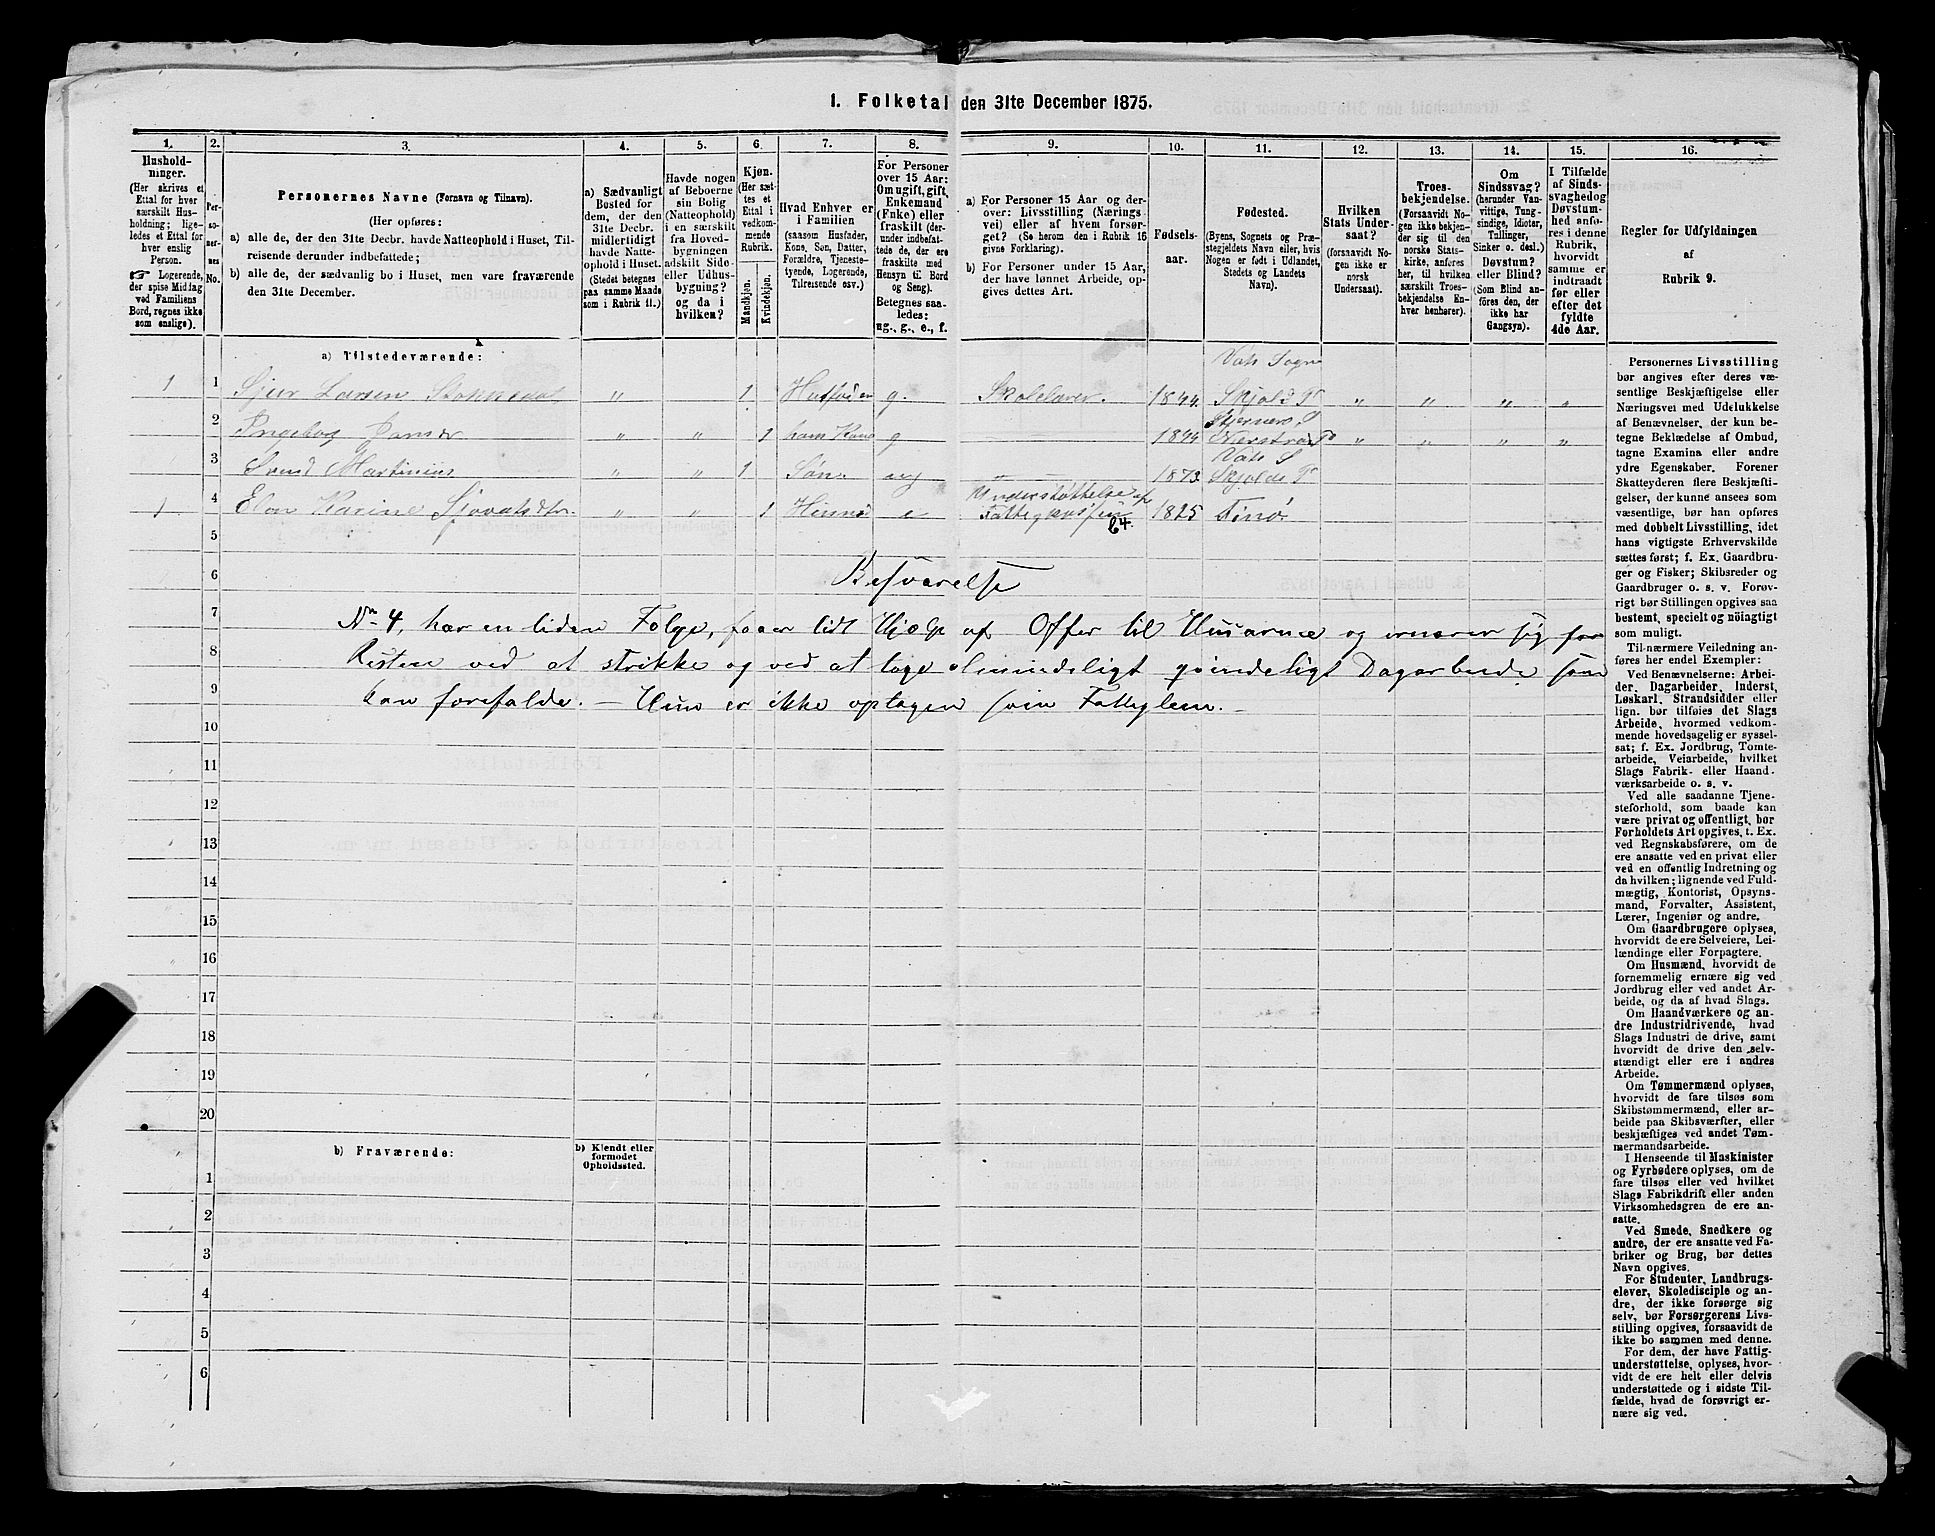 1. Folketal den 31te December 1875.
1.
2.
3.
4.
5.
6.
7.
8.
9.
10.
11.
12.
13.
14.
15.
16.
Hushold-
ninger.
(Her skrives et
Ettal for hver
særskilt Hus-
holdning; lige-
ledes et Ettal for
hver enslig
Person.
☞ Logerende,
der spise Middag
ved Familiens
Bord, regnes ikke
som enslige).
Per-
so-
ner-
nes
No.
Personernes Navne (Fornavn og Tilnavn).
(Her opføres:
a) alle de, der den 31te Decbr. havde Natteophold i Huset, Til-
reisende derunder indbefattede;
b) alle de, der sædvanlig bo i Huset, men vare fraværende
den 31te December.
a) Sædvanligt
Bosted for
dem, der den
31te Decbr.
midlertidigt
havde Natte-
ophold i Huset.
(Stedet betegnes
paa samme Maade
som i Rubrik 11.)
Havde nogen
af Beboerne
sin Bolig
(Natteophold)
i en særskilt
fra Hoved-
bygningen
adskilt Side-
eller Udhus-
bygning?
og da i
hvilken?
Kjøn.
(Her sæt-
tes et
Ettal i
vedkom-
mende
Rubrik.
Mandkjøn.
Kvindekjøn.
Hvad Enhver er
i Familien
(saasom Husfader,
Kone, Søn, Datter,
Forældre, Tjeneste-
tyende, Logerende,
Tilreisende osv.)
For Personer
over 15 Aar:
Om ugift, gift,
Enkemand
(Enke) eller
fraskilt (der-
under indbefat-
tede de, der ere
fraskilte med
Hensyn til Bord
og Seng).
Betegnes saa-
ledes:
ug., g., e., f.
a) For Personer 15 Aar og der-
over: Livsstilling (Nærings-
vei) eller af hvem forsør-
get? (Se herom den i Rubrik 16
givne Forklaring).
b) For Personer under 15 Aar,
der have lønnet Arbeide, op-
gives dettes Art.
Fødsels-
aar.
Fødested.
(Byens, Sognets og Præ-
stegjeldets Navn eller, hvis
Nogen er født i Udlandet,
Stedets og Landets
Navn).
Hvilken
Stats Under-
saat?
(forsaavidt No-
gen ikke er
norsk
Undersaat).
Troes-
bekjendelse.
(Forsaavidt No-
gen ikke bekjen-
der sig til den
norske Stats-
kirke, anføres
her, til hvilken
særskilt Troes-
bekjendelse En-
hver henhører).
Om
Sindssvag?
(herunder Van-
vittige, Tung-
sindige, Idioter,
Tullinger,
Sinker o. desl.)
Døvstum?
eller Blind?
(Som Blind an-
føres den, der
ikke har
Gangsyn).
I Tilfælde
af Sinds-
svaghed og
Døvstum-
hed anfø-
res i denne
Rubrik,
hvorvidt
samme er
indtraadt
før eller
efter det
fyldte
4de Aar.
Regler for Udfyldningen
af
Rubrik 9.
a) Tilstedeværende:
1 1 Sjur Larsen „ 1 Husfader g. Skolelærer. 1844. Vats Sogn Skjold P „ „ „ „
2 „ „ 1 hans Kone g 1844 Nærstrand P „ „ „ „
3 Svend Martinius „ „ 1 Søn ug — 1873 Vats S Skjolds P
1 4 Elen Karine „ „ 1 e Understøttelse af 1825 Finø.
64.
5
6 Besvarelse
7 No 4, har en liden Folge, faaer lidt Hjelp af Offer til Husarme og ernærer sig for
8 Resten ved at strikke og ved at tage almindeligt qvindeligt Dagarbeide som
9 kan forefalde. — Hun er ikke optagen som Fattiglem. —
10
11
12
13
14
15
16
17
18
19
20
b) Fraværende:
b) Kjendt eller
formodet
Opholdssted.
1
2
3
4
5
6
Personernes Livsstilling
bør angives efter deres væ-
sentlige Beskjæftigelse eller
Næringsvei med Udelukkelse
af Benævnelser, der kun be-
tegne Beklædelse af Ombud,
tagne Examina eller andre
ydre Egenskaber. Forener
Skatteyderen flere Beskjæfti-
gelser, der kunne ansees som
væsentlige, bør han opføres
med dobbelt Livsstilling, idet
hans vigtigste Erhvervskilde
sættes først; f. Ex. Gaardbru-
ger og Fisker; Skibsreder og
Gaardbruger o. s. v. Forøv-
rigt bør Stillingen opgives saa
bestemt, specielt og nøiagtigt
som muligt.
Til nærmere Veiledning an-
føres her endel Exempler:
Ved Benævnelserne: Arbei-
der, Dagarbeider, Inderst,
Løskarl, Strandsidder eller
lign. bør tilføies det Slags
Arbeide, hvormed vedkom-
mende hovedsagelig er syssel-
sat; f. Ex. Jordbrug, Tomte-
arbeide, Veiarbeide, hvilket
Slags Fabrik- eller Haand-
værksarbeide o. s. v.
Ved alle saadanne Tjene-
steforhold, som baade kan
være privat og offentligt, bør
Forholdets Art opgives, t. Ex.
ved Regnskabsførere, om de
ere ansatte ved en privat eller
ved en offentlig Indretning og
da hvilken; lignende ved Fuld-
mægtig, Kontorist, Opsyns-
mand, Forvalter, Assistent,
Lærer, Ingeniør og andre.
Om Gaardbrugere oplyses,
hvorvidt de ere Selveiere, Lei-
lændinge eller Forpagtere.
Om Husmænd, hvorvidt de
fornemmelig ernære sig ved
Jordbrug eller ved andet Ar-
beide, og da af hvad Slags.
Om Haandværkere og an-
dre Industridrivende, hvad
Slags Industri de drive, samt
hvorvidt de drive den selv-
stændigt eller ere i andres
Arbeide.
Om Tømmermænd oplyses,
hvorvidt de fare tilsøs som
Skibstømmermænd, eller ar-
beide paa Skibsværfter, eller
beskjæftiges ved andet Tøm-
mermandsarbeide.
I Henseende til Maskinister
og Fyrbødere oplyses, om de
fare tilsøs eller ved hvilket
Slags Fabrikdrift eller anden
Virksomhedsgren de ere an-
satte.
Ved Smede, Snedkere og
andre, der ere ansatte ved Fa-
briker og Brug, bør dettes
Navn opgives.
For Studenter, Landbrugs-
elever, Skoledisciple og an-
dre, der ikke forsørge sig
selv, bør Forsørgerens Livs-
stilling opgives, forsaavidt de
ikke bo sammen med denne.
For dem, der have Fattig-
understøttelse, oplyses, hvor-
vidt de ere helt eller delvis
understøttede og i sidste Til-
fælde, hvad de forøvrigt er-
nære sig ved.